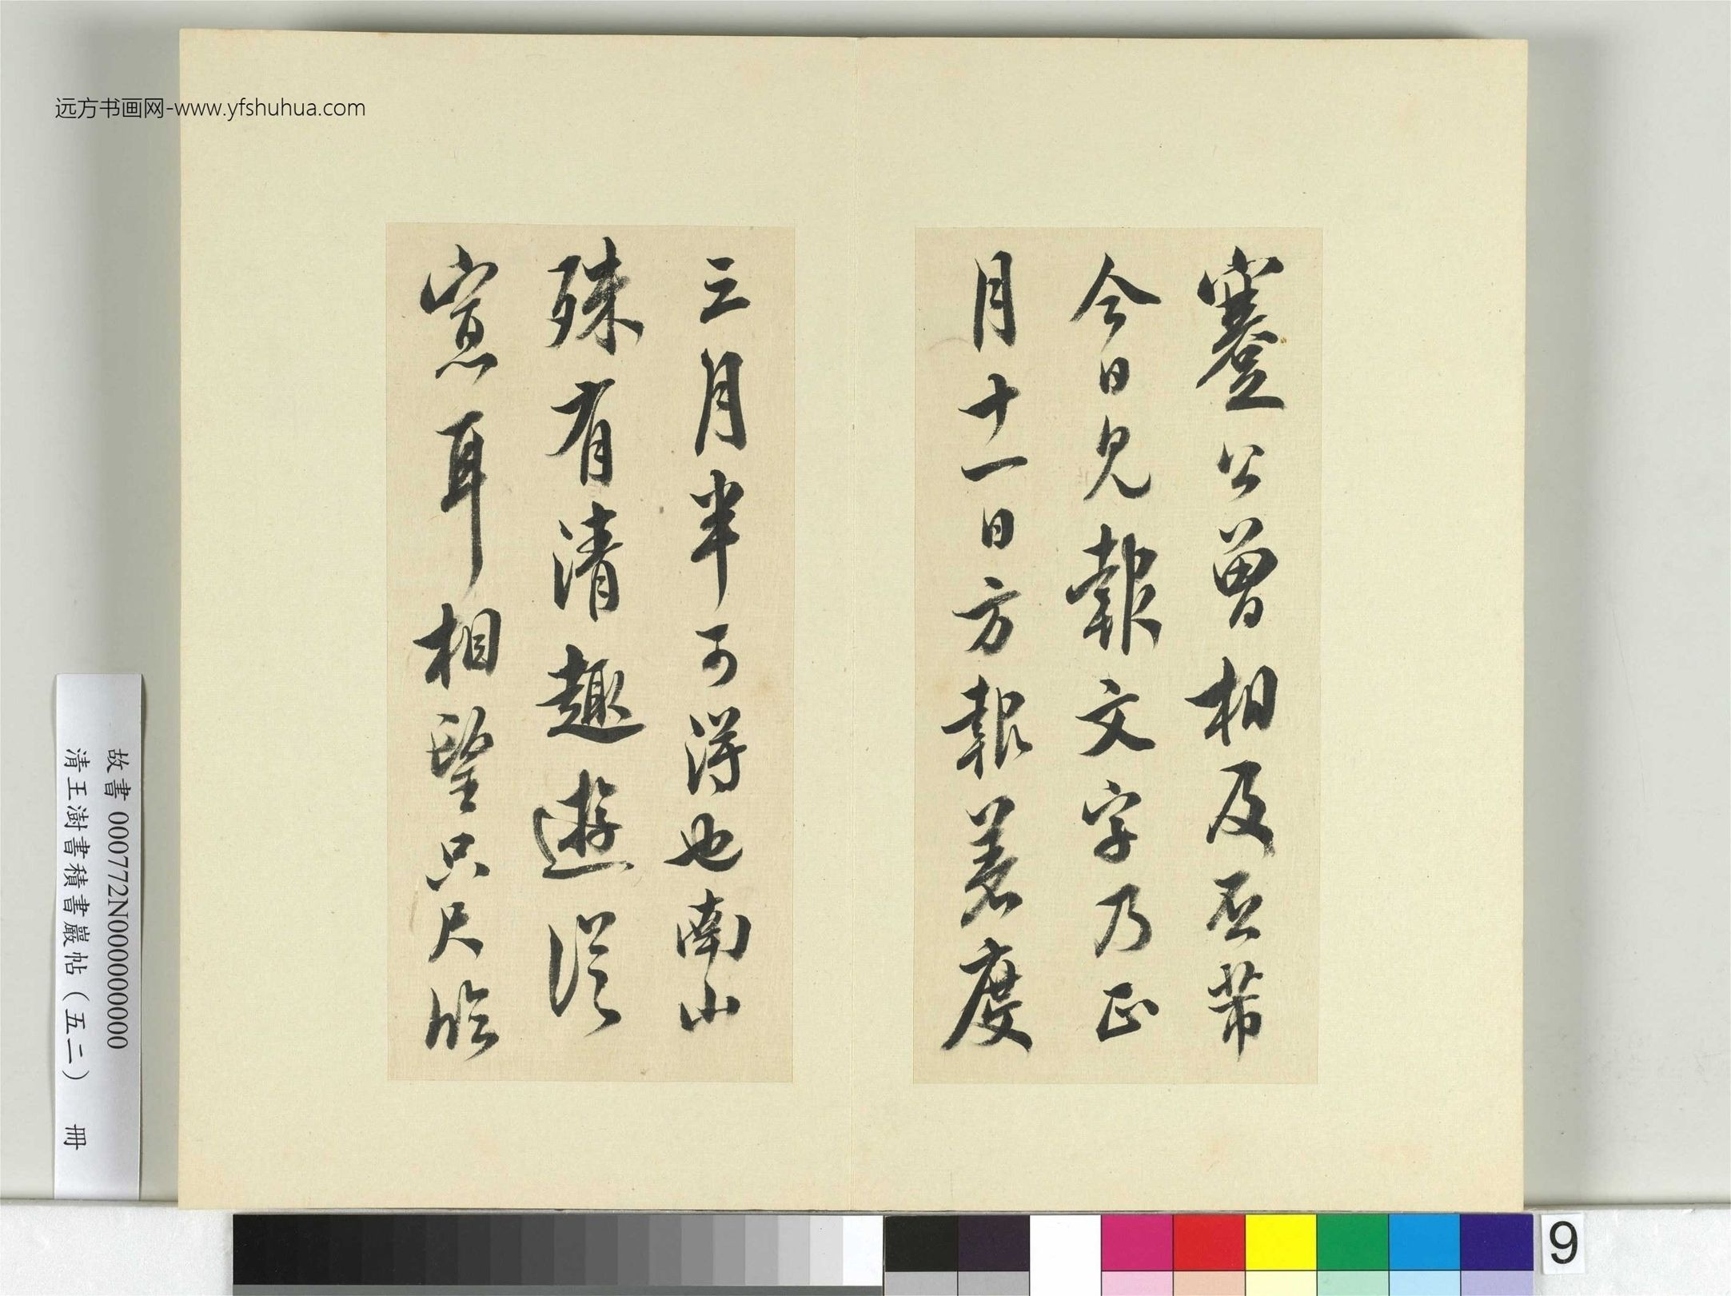 远方书画网-www.yfshuhua.com
公曾相及否芾
今日见報文字乃正
月十一日方報差度
三月半可得也南山
殊有清趣遊從
意耳相望只尺臨
故書 000772N000000000
清王澍書積書巖帖（五二） 冊
9